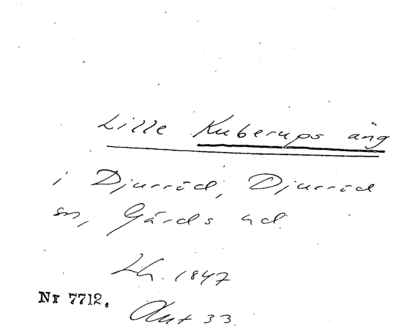 Lille Kuberups äng
i Djurröd, Djurröd
sn, Gärds hd.
Lh. 1847
Nr 7712.
Akt 33.